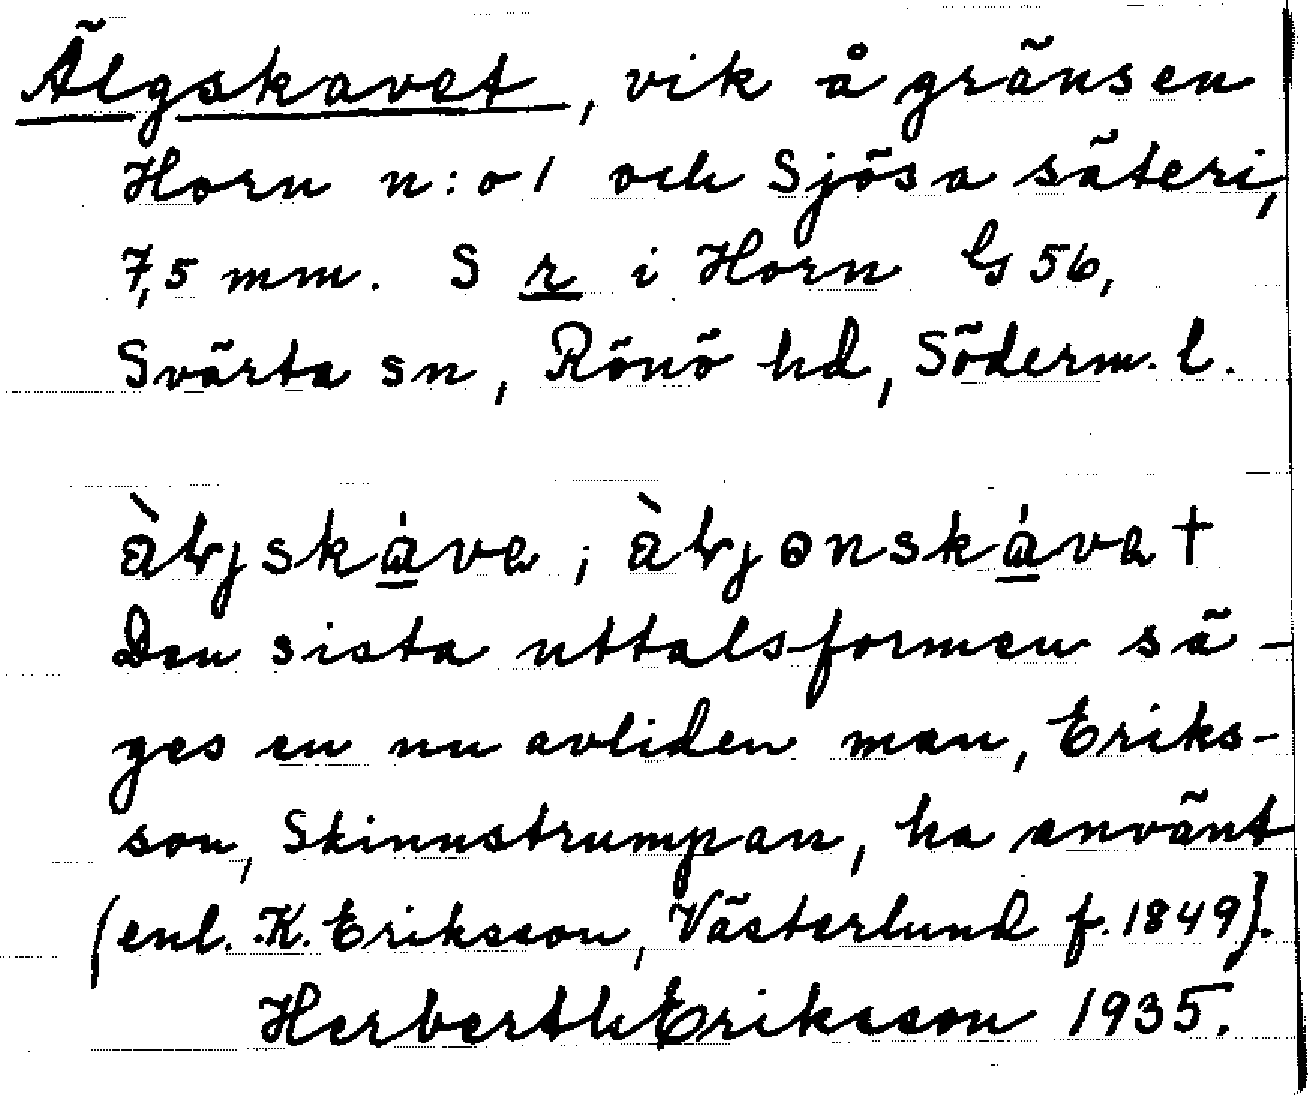 Älgskavet, vik å gränsen
Horn n:o 1 och Sjösa säteri,
7,5 mm. S r i Horn G 56,
Svärta sn, Rönö hd, Söderm. l.
Den sista uttalsformen sä-
ges en nu avliden man, Eriks-
son, Skinnstrumpan, ha använt
(enl. K. Eriksson, Västerlund f. 1849).
Herberth Eriksson 1935.